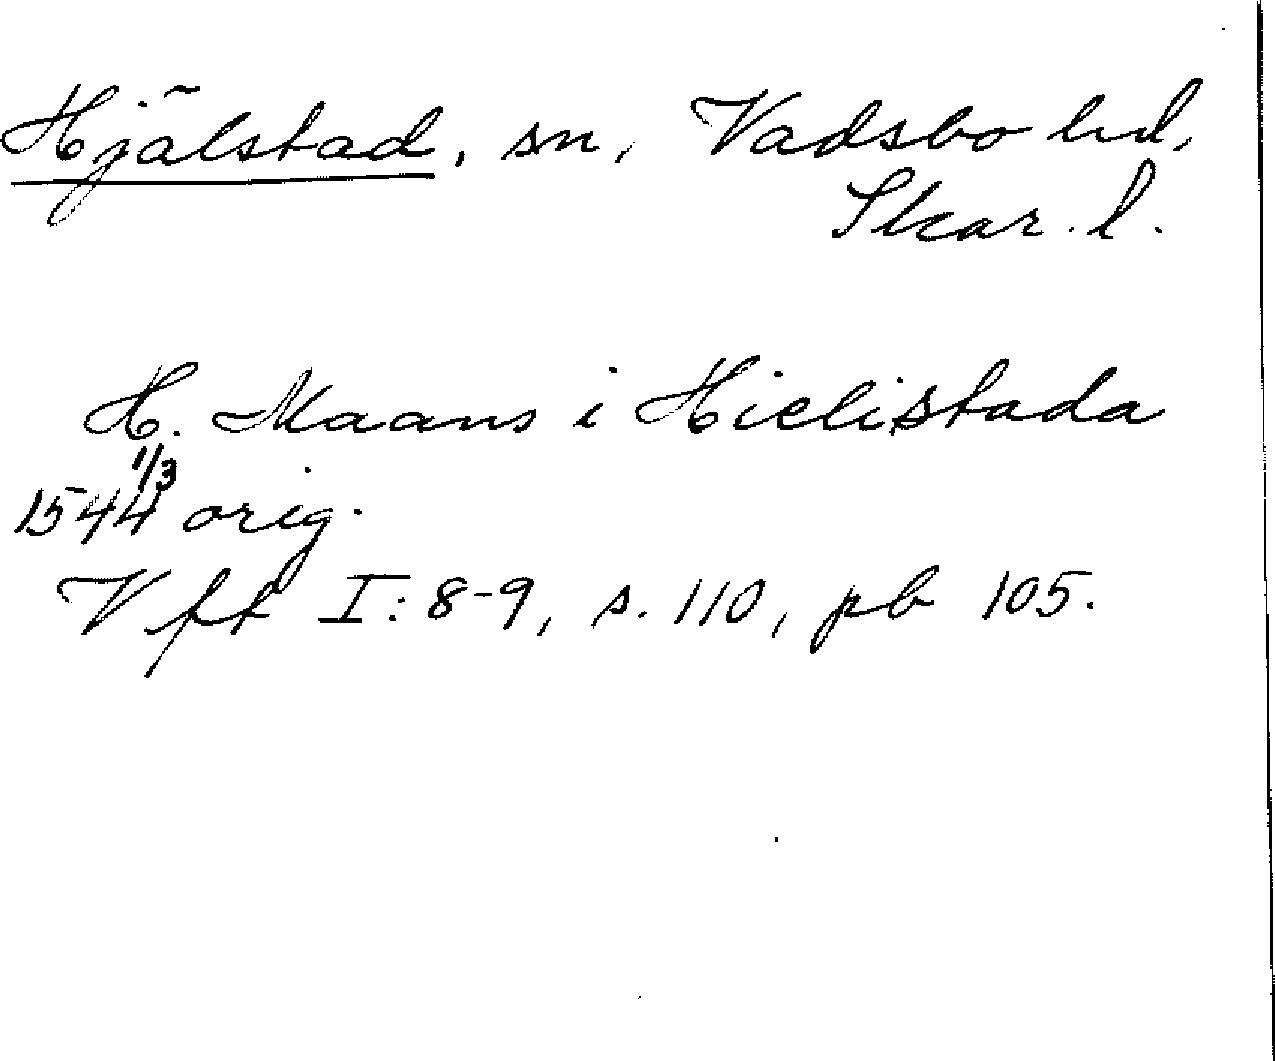 Hjälstad, sn, Vadsbo hd,
Skar. l.
H. Maans i Hielistada
1544 1/3 orig.
Vft I: 8-9, s. 110, pb 105.